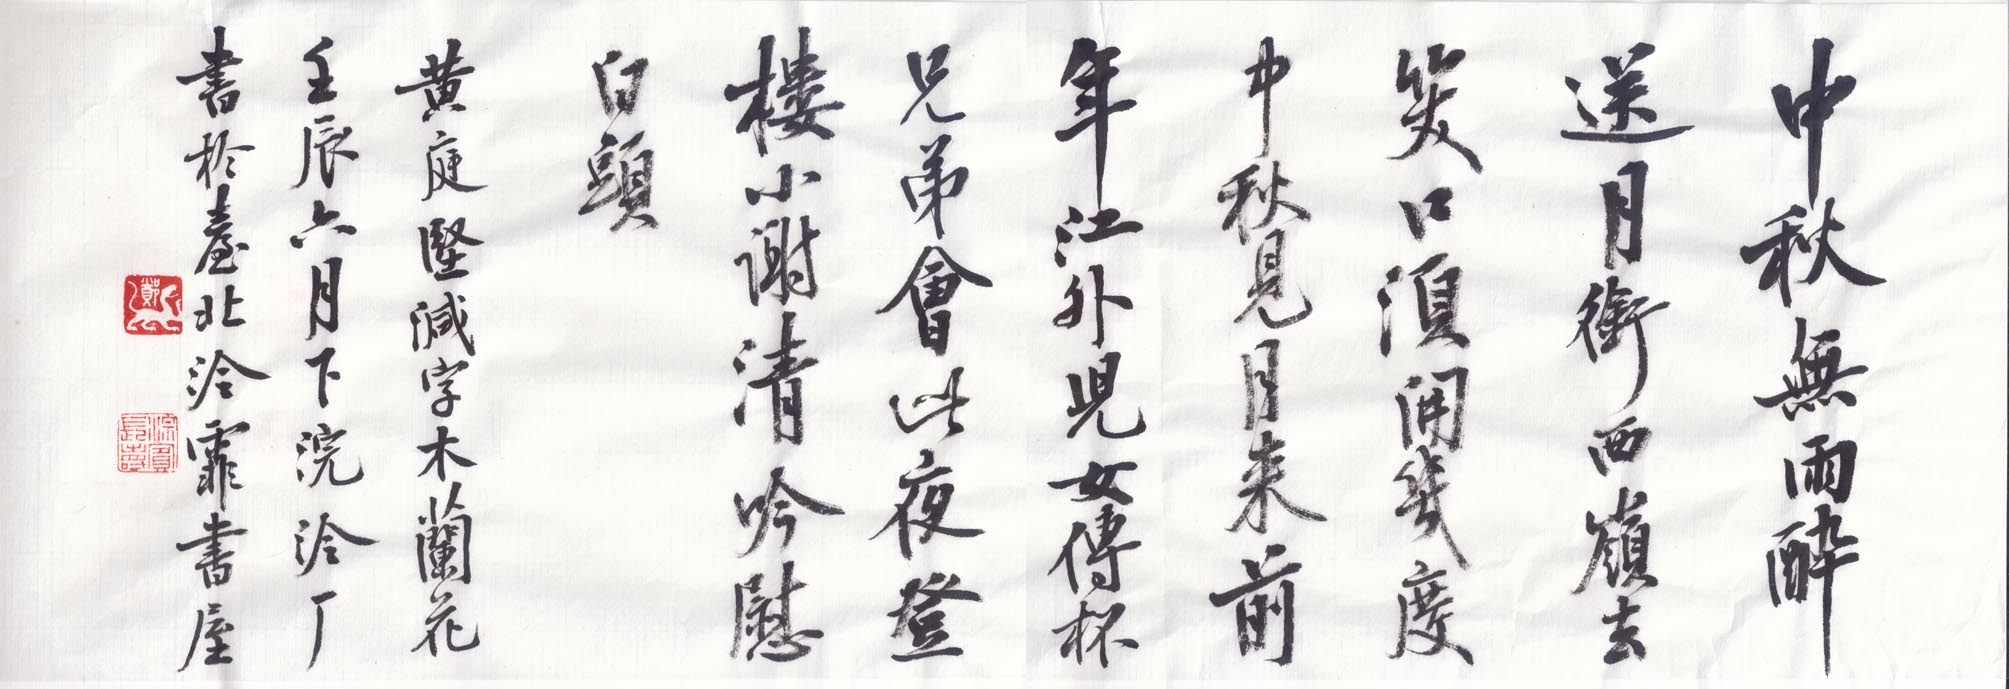 中秋無雨醉
送月銜西嶺去
笑口須開幾度
中秋見月来前
年江外児女傳杯
兄弟會此夜登
樓小謝清吟慰
白頭
黄庭堅減字木蘭花
壬辰六月下浣泠丁
書於臺北泠霏書屋